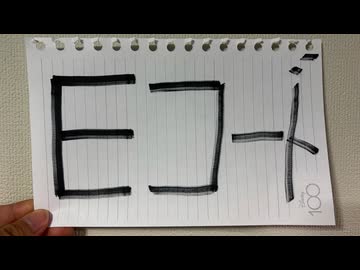 Eコード
Disney
100